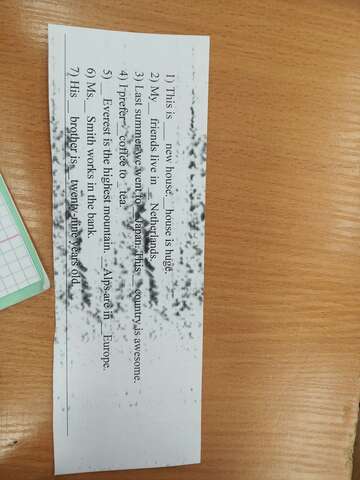 1) This is ___ new house, __ house is huge.
2) My __ friends live in __ Netherlands.
3) Last summer we went to __ Japan. This __ country is awesome.
4) I prefer __ coffee to __ tea.
5) __ Everest is the highest mountain. __ Alps are in __ Europe.
6) Ms. __ Smith works in the bank.
7) His __ brother is __ twenty-nine years old.